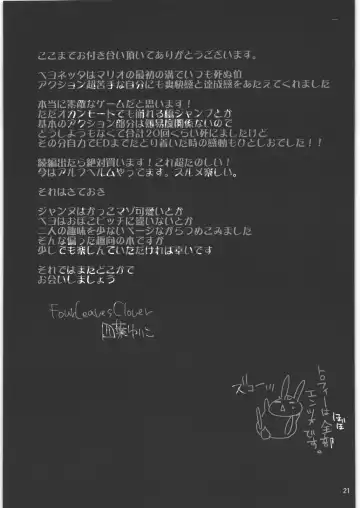 ここまでお付き合い頂いてありがとうございます。
ベヨネッタはマリオの最初の溝でいつも死ぬ位
アクション超苦手な自分にも爽快感と達成感をあたえてくれました
本当に素敵なゲームだと思います!
ただオカンモードでも崩れる橋ジャンプとか
基本のアクション部分は難易度関係ないので
どうしようもなくて合計20回くらい死にましたけど
その分自力でEDまでたどり着いた時の感動もひとしおでした!!
続編出たら絶対買います!これ超たのしい!
今はアルフヘルムやってます。スルメ楽しい。
それはさておき
ジャンヌはかっこマゾ可愛いとか
ベヨはおぼこビッチに違いないとか
二人の趣味を少ないページながらつめこみました
そんな偏った趣向の本ですが
少しでも楽しんでいただければ幸いです
それではまたどこかで
お会いしましょう
FourLeavesClover
四葉ゆいこ
ズコーッ
トロフィーは
ほぼ全部
エンツォです。
21